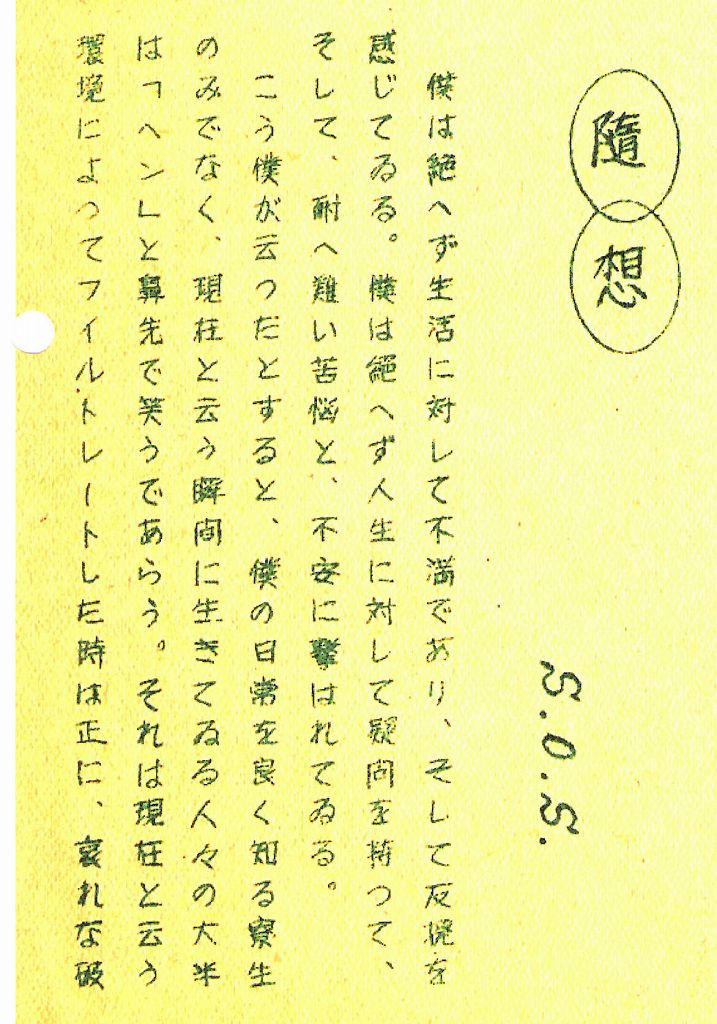 隨想
S.O.S.
僕は絶へず生活に対して不満であり、そして反撥を
感じてゐる。僕は絶へず人生に対して疑問を持つて、
そして、耐へ難い苦悩と、不安に襲はれてゐる。
こう僕が云つたとすると、僕の日常を良く知る寮生
のみでなく、現在と云う瞬間に生きてゐる人々の大半
は「ヘン」と鼻先で笑うであらう。それは現在と云う
環境によつてフイルトレートした時は正に、哀れな破